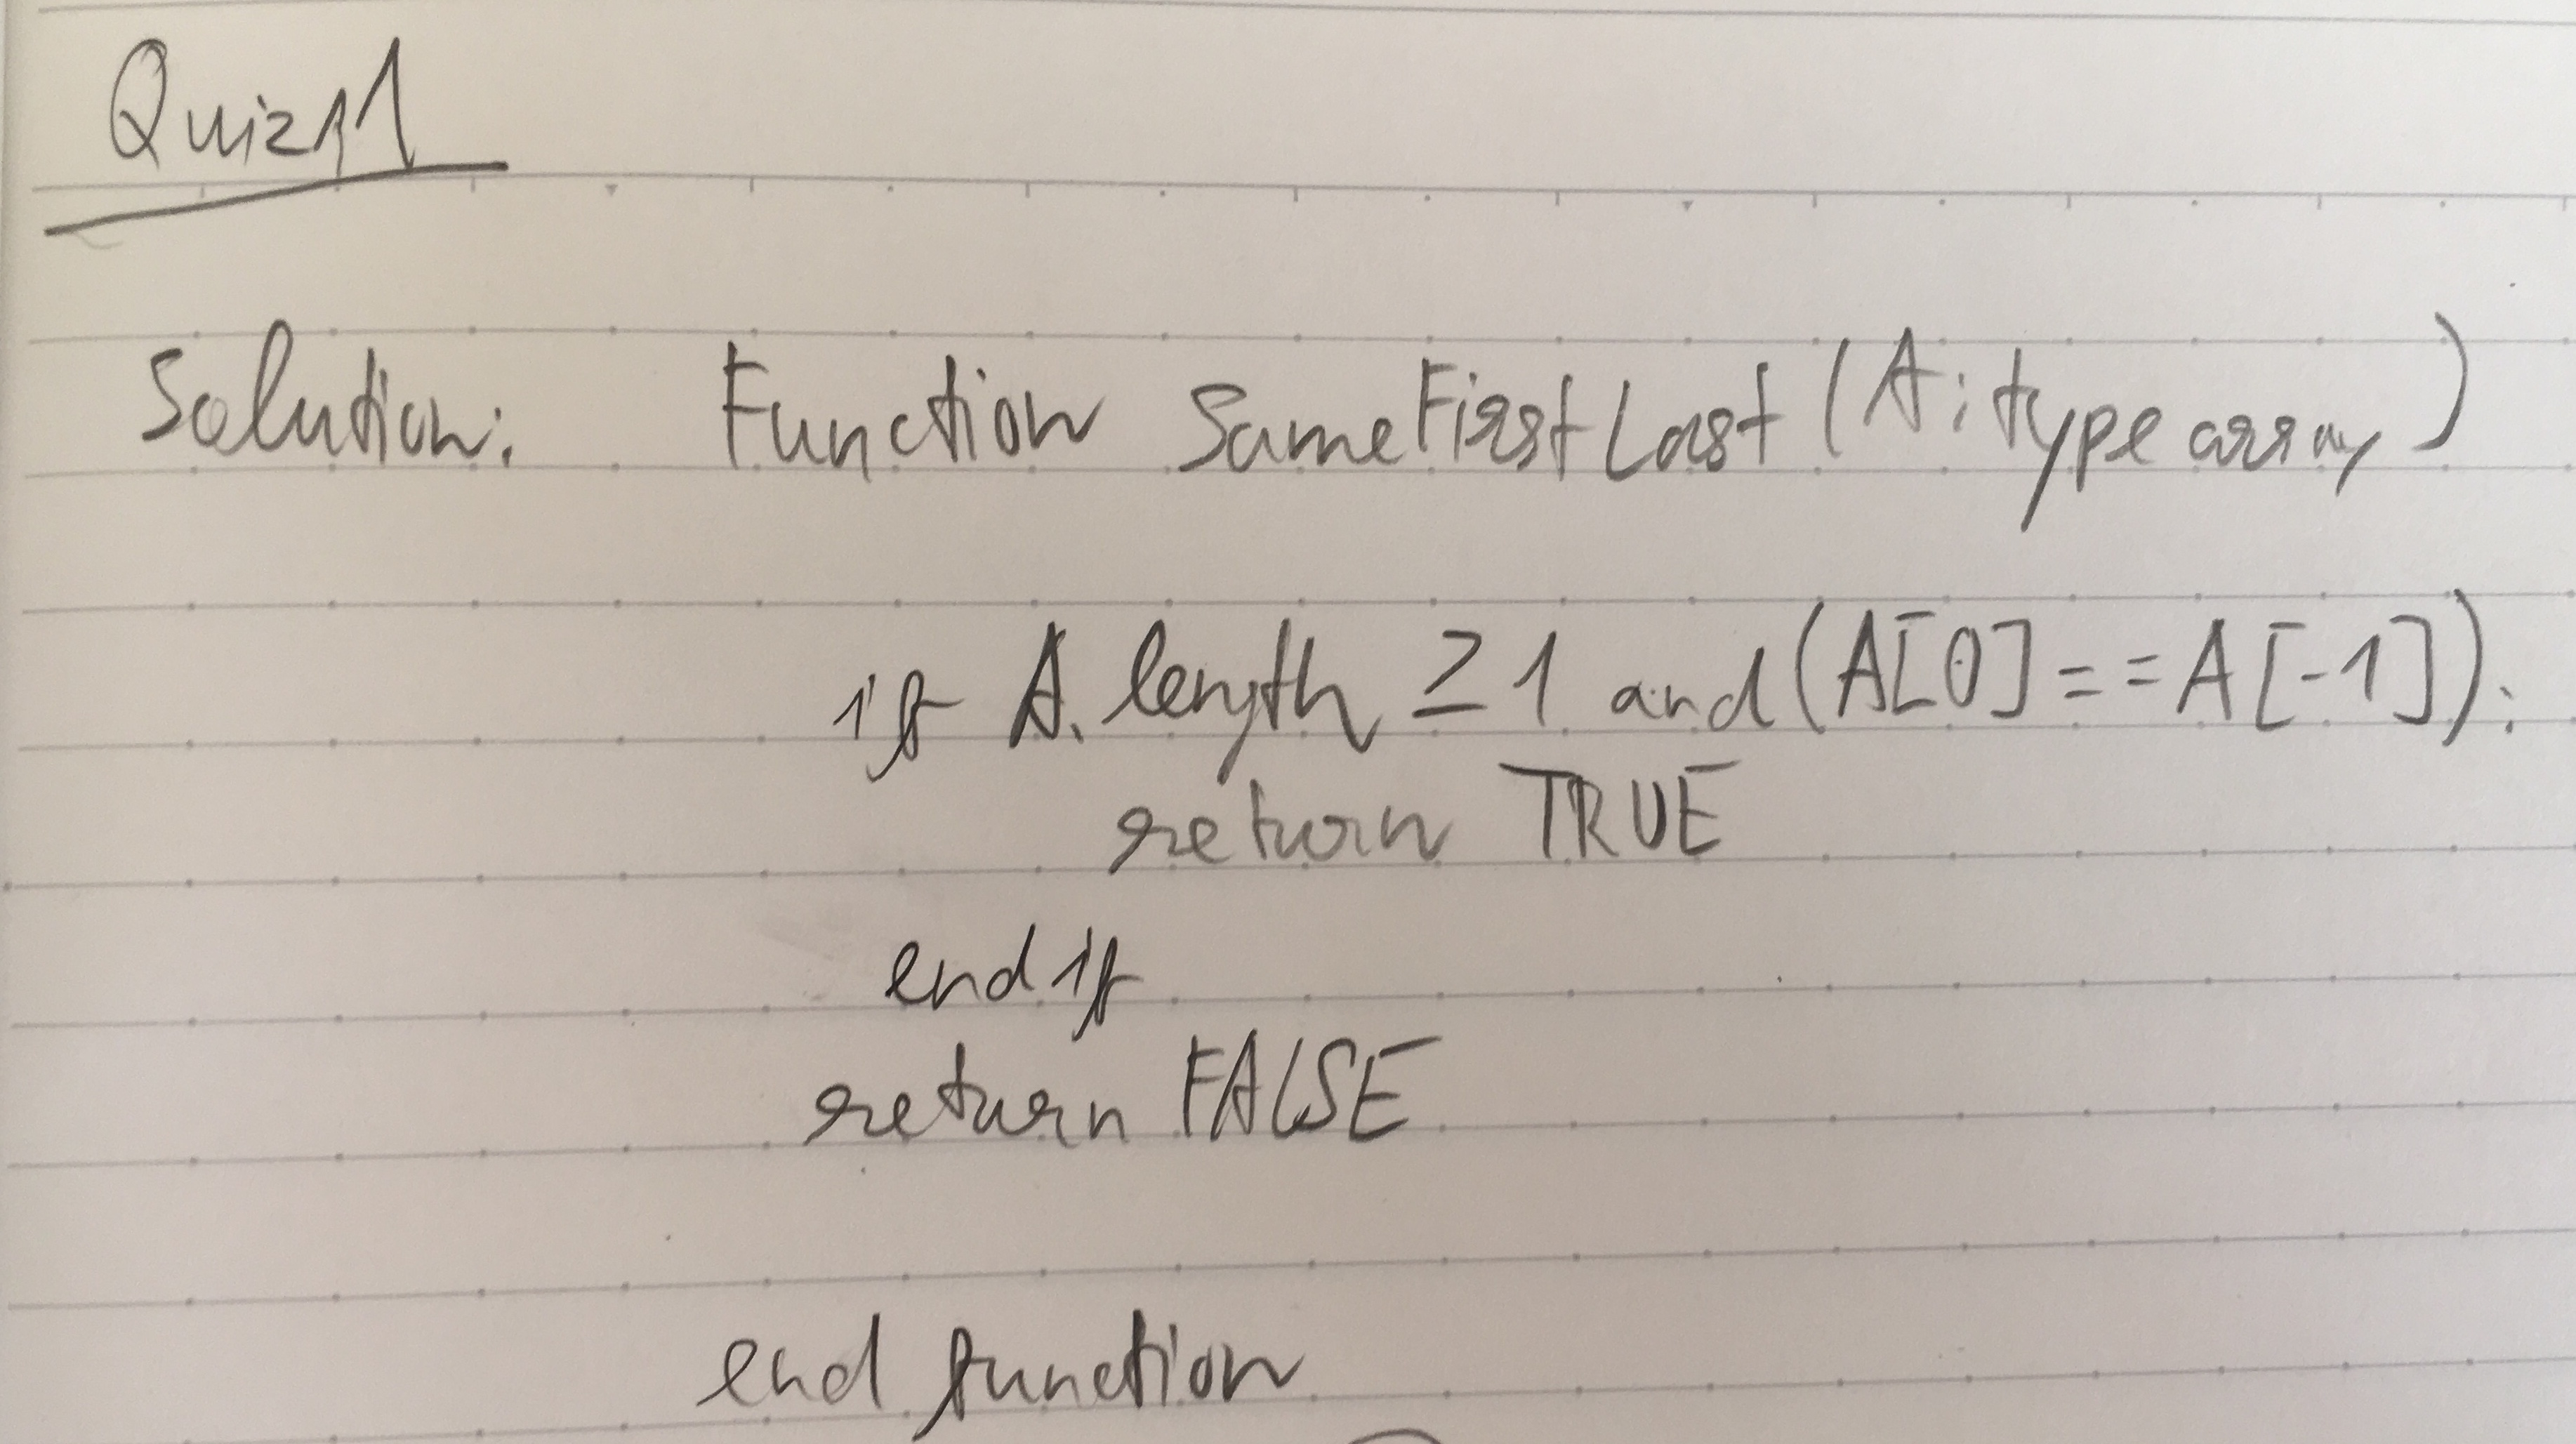 Quiz 11
Solution: Function SameFirstLast (A: type array)
if A. length ≥ 1 and (A[0] == A[-1]):
return TRUE
end if
return FALSE
end function